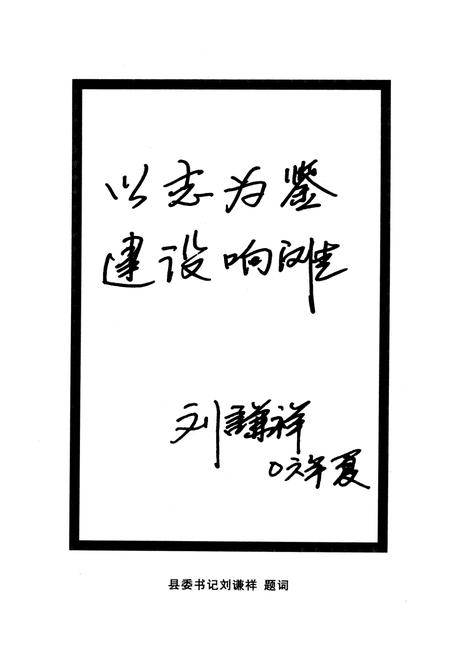 以志为鉴
建设响滩
刘謙祥
〇六年夏
县委书记刘谦祥 题词